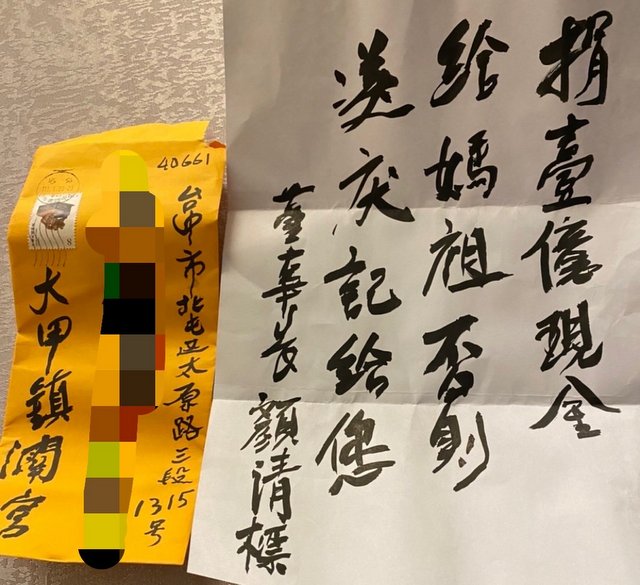 捐壹億現金
給媽祖否則
災記給您
董事長 顏清標
40661
台中市北屯区太原路三段15
13号
大甲鎮瀾宮